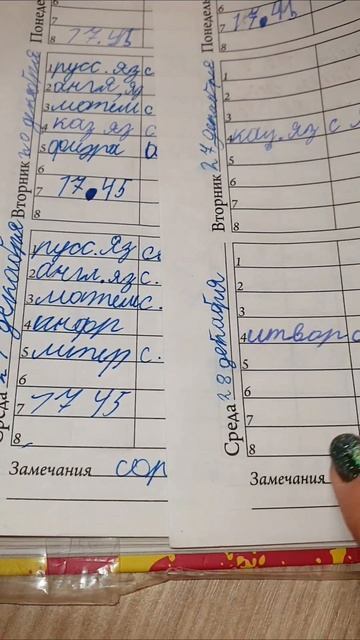 Понедель
6
7
8 17.45
Вторник 20 декабря
1 русс. яз с
2 англ. яз
3 матем с
4 каз. яз с
5 физра
6
7 17.45
8
Среда 21 декабря
1 русс. яз с
2 англ. яз с.
3 матем с.
4 инфр
5 литер с.
6
7 17 45
8
Замечания сор
Понедель
6
7 17.45
8
Вторник 27 декабря
1
2
3
4 каз. яз с
5
6
7
8
Среда 28 декабря
1
2
3
4 итвор с
5
6
7
8
Замечания